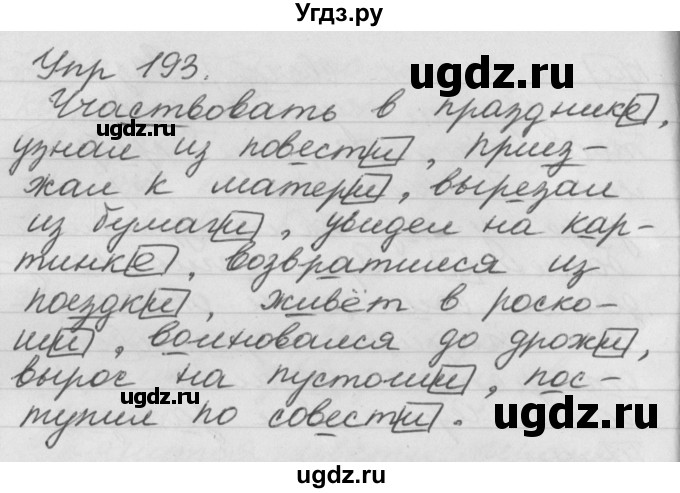 Угдз.ру
Упр 193.
ugdz.ru
Участвовать в празднике,
ugdz.ru
узнал из повести, приез-
жал к матери, вырезал
из бумаги, увидел на кар-
тинке, возвратился из
поездки, живёт в роско-
ши, волновался до дрожи,
вырос на пустоши, пос-
ugdz.ru
ugdz.ru
тупил по совести.
ugdz.ru